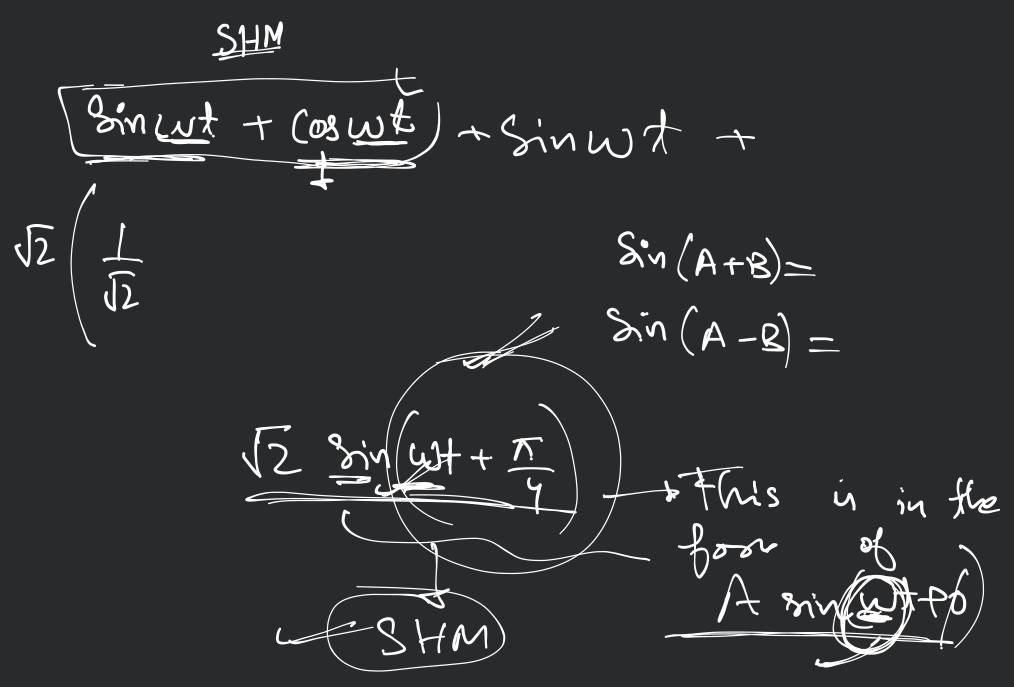 SHM
Sin ωt + Cos ωt + Sin ωt +
√2 ( 1/√2
Sin (A+B) =
Sin (A-B) =
√2 sin (ωt + π/4)
→ This is in the
form of
A sin(ωt+φ)
SHM